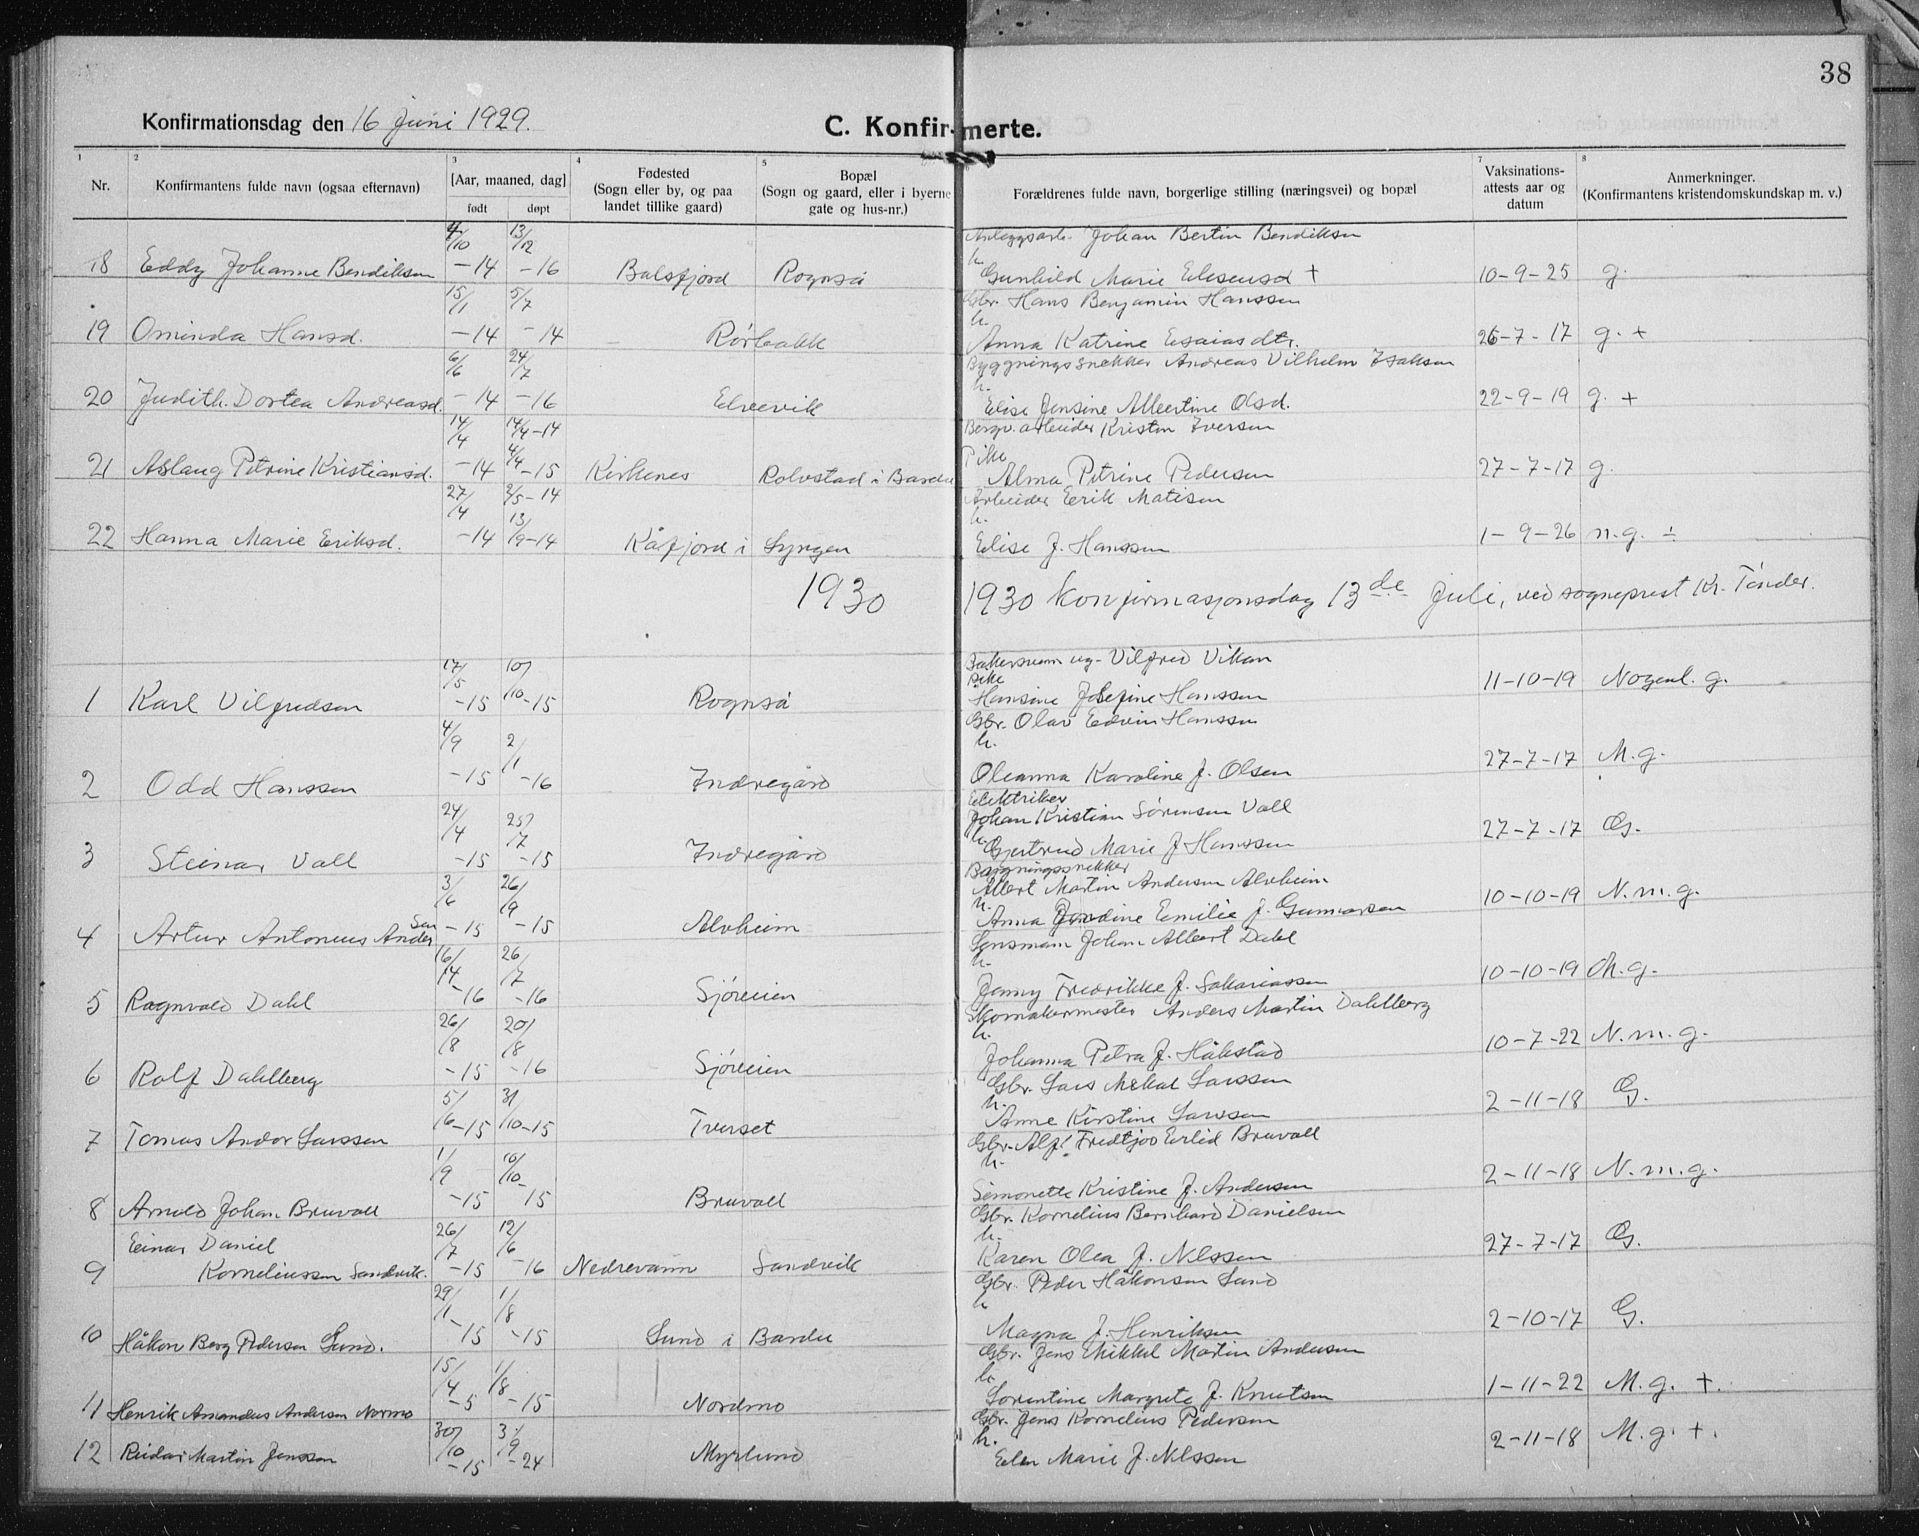 38
Konfirmationsdag den 16 Juni 1929.
C. Konfirmerte.
1 2 3 4 5 7 8
Nr.
Konfirmantens fulde navn (ogsaa efternavn)
[Aar, maaned, dag]
født døpt
Fødested
(Sogn eller by, og paa
landet tillike gaard)
Bopæl
(Sogn og gaard, eller i byerne
gate og hus-nr.)
Forældrenes fulde navn, borgerlige stilling (næringsvei) og bopæl
Vaksinations-
attests aar og
datum
Anmerkninger.
(Konfirmantens kristendomskundskap m. v.)
4/10 13/12 Anleggsarb. Johan Bertin Bendiksen
18 Eddy Johanne Bendiksen -14 -16 Balsfjord Rognså h. Gunhild Marie Elisensd + 10-9-25 g.
15/1 5/7 Gbr. Hans Benjamin Hanssen
19 Ominda Hansd. -14 -14 Rørbakk h. Anna Katrine Esaiasdtr. 26-7-17 g. +
6/6 24/7 Byggningssnekker Andreas Vilhelm Isaksen
20 Judith Dortea Andreasd. -14 -16 Elvevik h. Elise Jensine Albertine Olsd. 22-9-19 g. +
14/4 14/4-14 Bergv. arbeider Kristen Iversen
21 Aslaug Petrine Kristiansd. -14 4/4-15 Kirkenes Rolvstad i Bardu Pike Alma Petrine Pedersen 27-7-17 g.
27/4 2/5-14 Arbeider Eerik Matisen
22 Hanna Marie Eriksd. -14 13/9-14 Kåfjord i Lyngen h. Elise J. Hanssen 1-9-26 n.g. ÷
1930 1930 Konfirmasjonsdag 13de Juli, ved sogneprest Kr. Tønder.
17/5 10/ Bakersvenn ug. Vilfred Vikan
1 Karl Vilfredsen -15 10-15 Rognså Pike Hansine Josefine Hanssen 11-10-19 Nogenl. g.
4/9 2/1 Gbr. Olav Edvin Hanssen
2 Odd Hanssen -15 -16 Indregård h. Oleanna Karoline f. Olsen 27-7-17 M.g.
24/4 25/7 Elektriker Johan Kristian Sørensen Vall
3 Steinar Vall -15 -15 Indregård h. Gjertrud Marie f Hanssen 27-7-17 G.
3/6 26/9 Byggningssnekker Albert Martin Andersen Alvheim
4 Artur Antonius Andersen -15 -15 Alvheim h. Anna Jendine Emilie f. Gunnarsen 10-10-19 N.m.g.
16/14 26/7 Lensmann Johan Albert Dahl
5 Ragnvald Dahl -16 -16 Sjøveien h. Jenny Fredrikke f. Sakariassen 10-10-19 M.g.
26/8 20/8 Skomakermester Anders Martin Dahlberg
6 Rolf Dahlberg -15 -16 Sjøveien h. Johanna Petra f. Håkstad 10-7-22 N.m.g.
5/ 31/ Gbr. Lars Mekal Larssen
7 Tomas Andor Larssen 6-15 10-15 Tverset h. Anne Kirstine Larssen 2-11-18 G.
1/9 10/10 Gbr. Alf Fredtjov Evlid Bruvoll
8 Arnold Johan Bruvoll -15 15 Bruvoll h. Simonette Kristine f. Andersen 2-11-18 N.m.g.
Einar Daniel 26/7 12/6 Gbr. Kornelius Bernhard Danielsen
9 Korneliussen Sandvik. -15 -16 Nedrevann Sandvik h. Karen Olea f. Nilssen 27-7-17 G.
29/1 1/8 Gbr. Peder Håkonsen Lund
10 Håkon Berg Pedersen Lund. -15 -15 Lund i Bardu h Magna f. Henriksen 2-10-17 G.
15/4 1/8 Gbr. Jens Mikkel Martin Andersen
11 Henrik Amandus Andersen Normo -5 -15 Nordmo h. Lorentine Margrete f. Knutsen 1-11-22 M.g. +.
30/10 31/9 Gbr. Jens Kornelius Pedersen
12 Reidar Martin Jenssen -15 -24 Myrlund h. Elen Marie f. Nilssen 2-11-18 M.g. +.